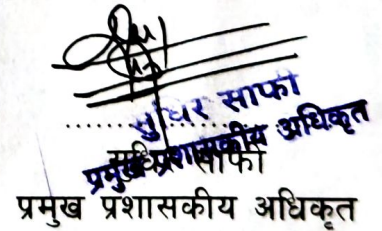 सुधिर साफी
प्रमुख प्रशासकीय अधिकृत
सुधिर साफी
प्रमुख प्रशासकीय अधिकृत